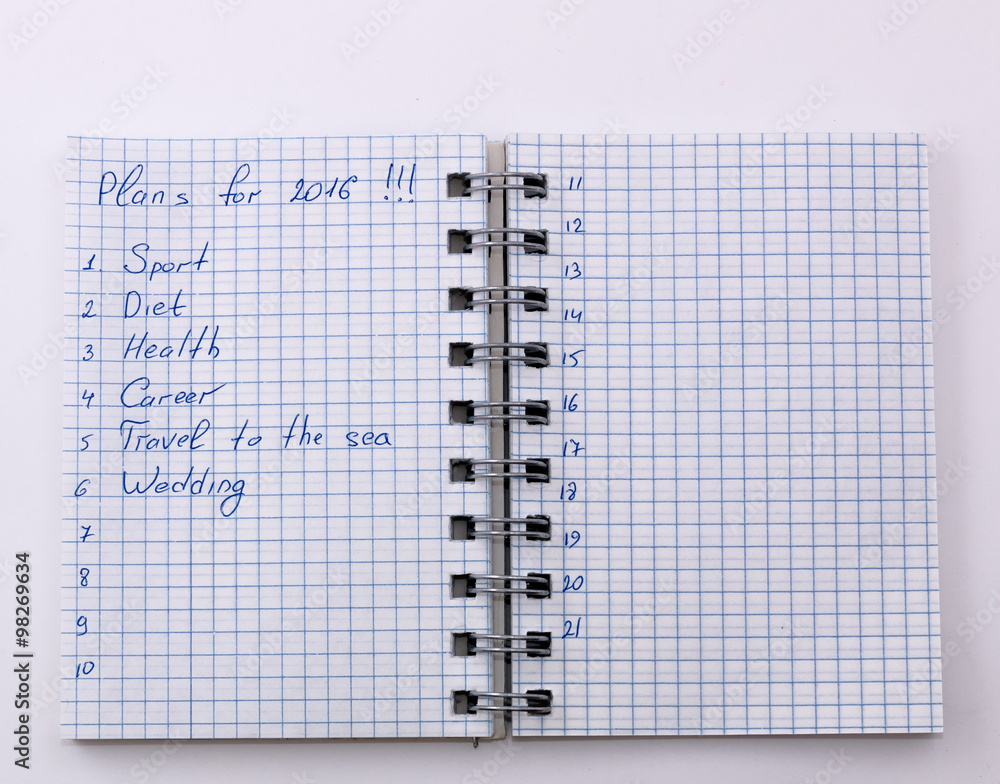 Plans for 2016 !!!
1. Sport
2 Diet
3 Health
4 Career
5 Travel to the sea
6 Wedding
7
8
9
10
11
12
13
14
15
16
17
18
19
20
21
Adobe Stock | #98269634